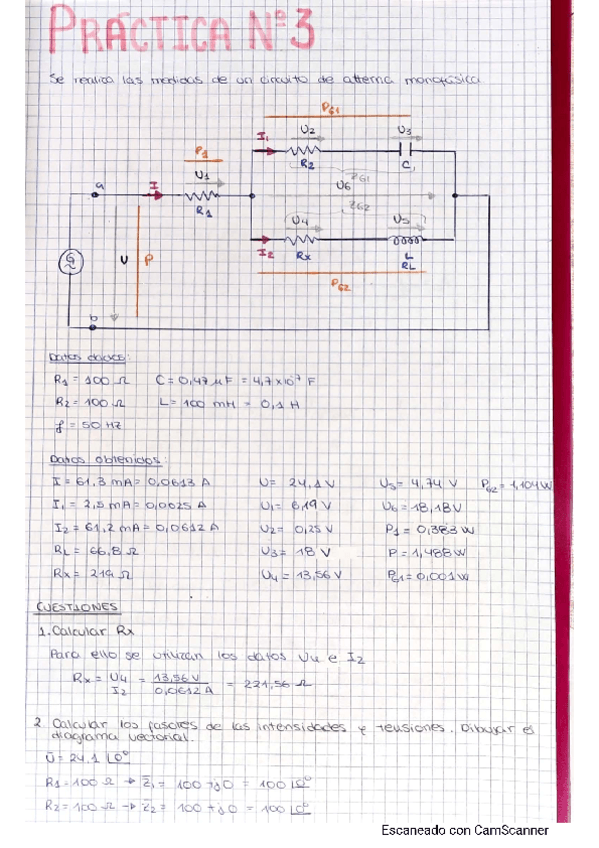 PRÁCTICA Nº3
Se realiza las medidas de un circuito de alterna monofásica
PG1
I1 U2 U3
P1
R2 C
U1
U6 ZG1
a I
ZG2
R1
U4 U5
G
U P
I2 Rx L
RL
PG2
b
Datos dados:
R1 = 100 Ω C = 0,47 µF = 4,7x10⁻⁷ F
R2 = 100 Ω L = 100 mH = 0,1 H
f = 50 Hz
Datos obtenidos:
I = 61,3 mA = 0,0613 A U = 24,1 V U5 = 4,74 V PG2 = 1,104W
I1 = 2,5 mA = 0,0025 A U1 = 6,19 V U6 = 18,18V
I2 = 61,2 mA = 0,0612 A U2 = 0,25 V P1 = 0,383 W
RL = 66,8 Ω U3 = 18 V P = 1,488W
Rx = 219 Ω U4 = 13,56 V PG1 = 0,001W
CUESTIONES
1. Calcular Rx
Para ello se utilizan los datos U4 e I2
Rx = U4 / I2 = 13,56V / 0,0612 A = 221,56 Ω
2. Calcular los fasores de las intensidades y tensiones. Dibujar el
diagrama vectorial.
Ū = 24,1 ∠0°
R1 = 100 Ω → Z̄1 = 100 + j0 = 100 ∠0°
R2 = 100 Ω → Z̄2 = 100 + j0 = 100 ∠0°
Escaneado con CamScanner